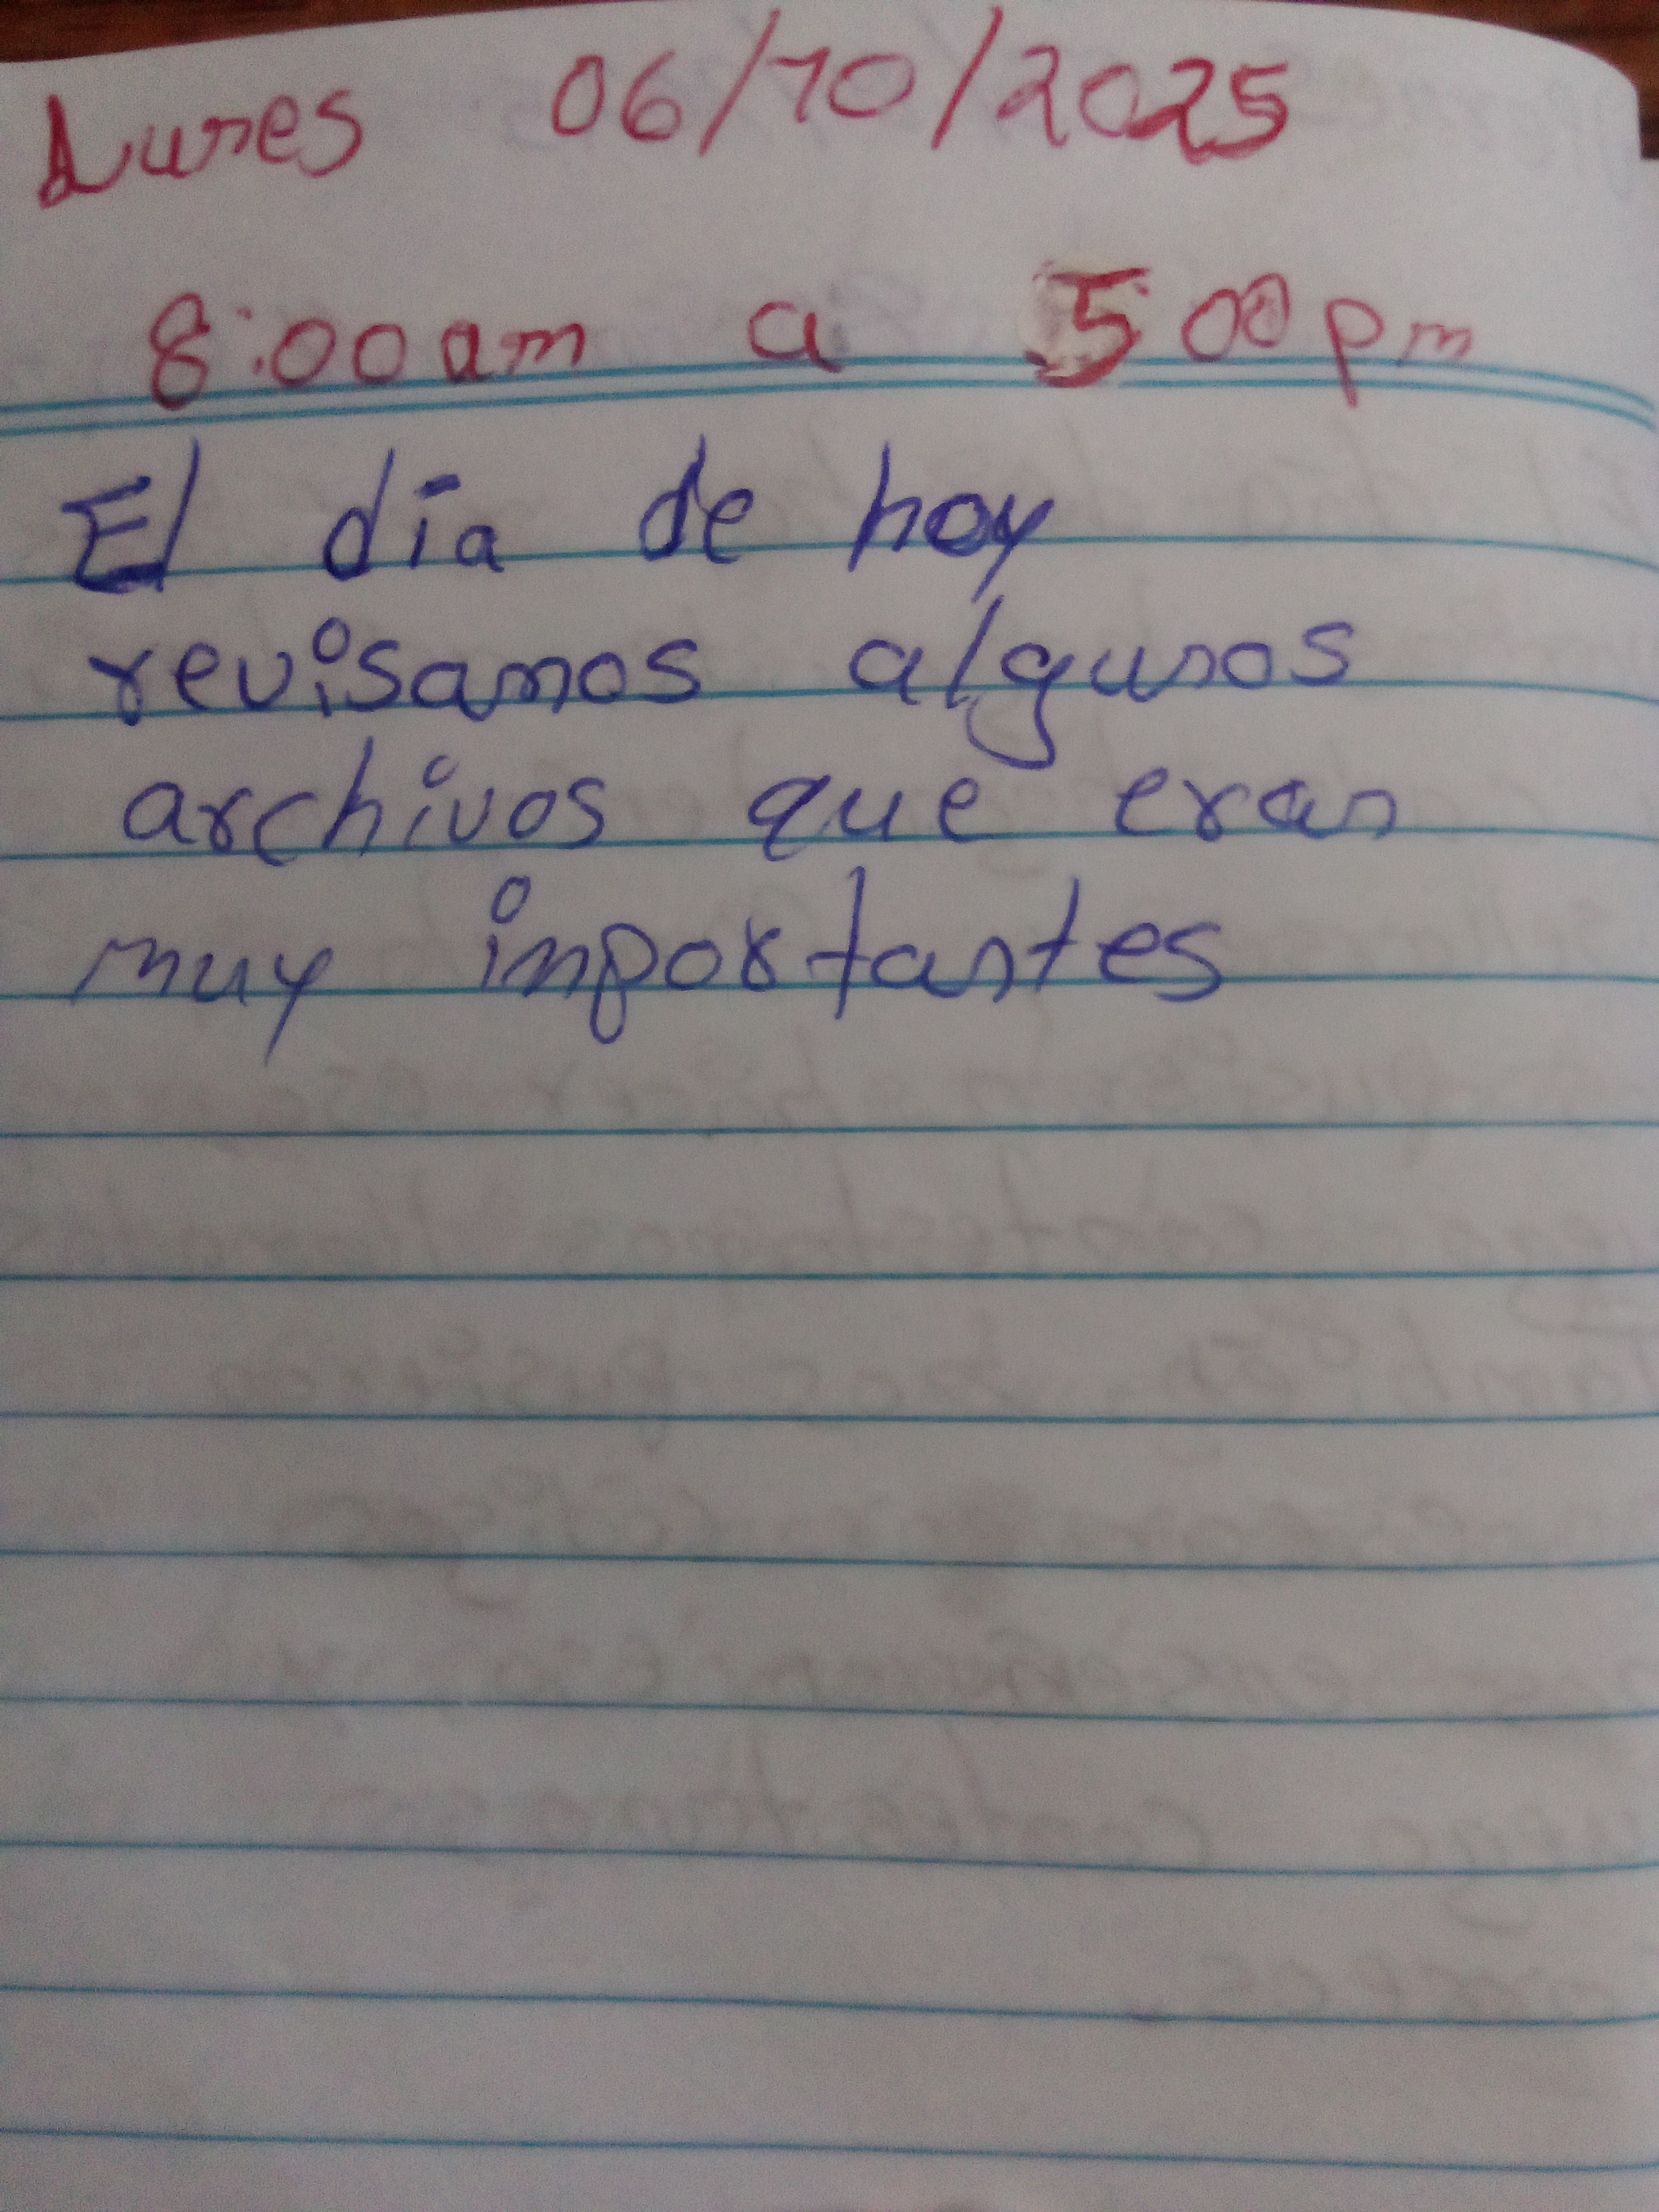 Lunes 06/10/2025
8:00am a 5:00pm
El día de hoy
revisamos algunos
archivos que eran
muy inportantes